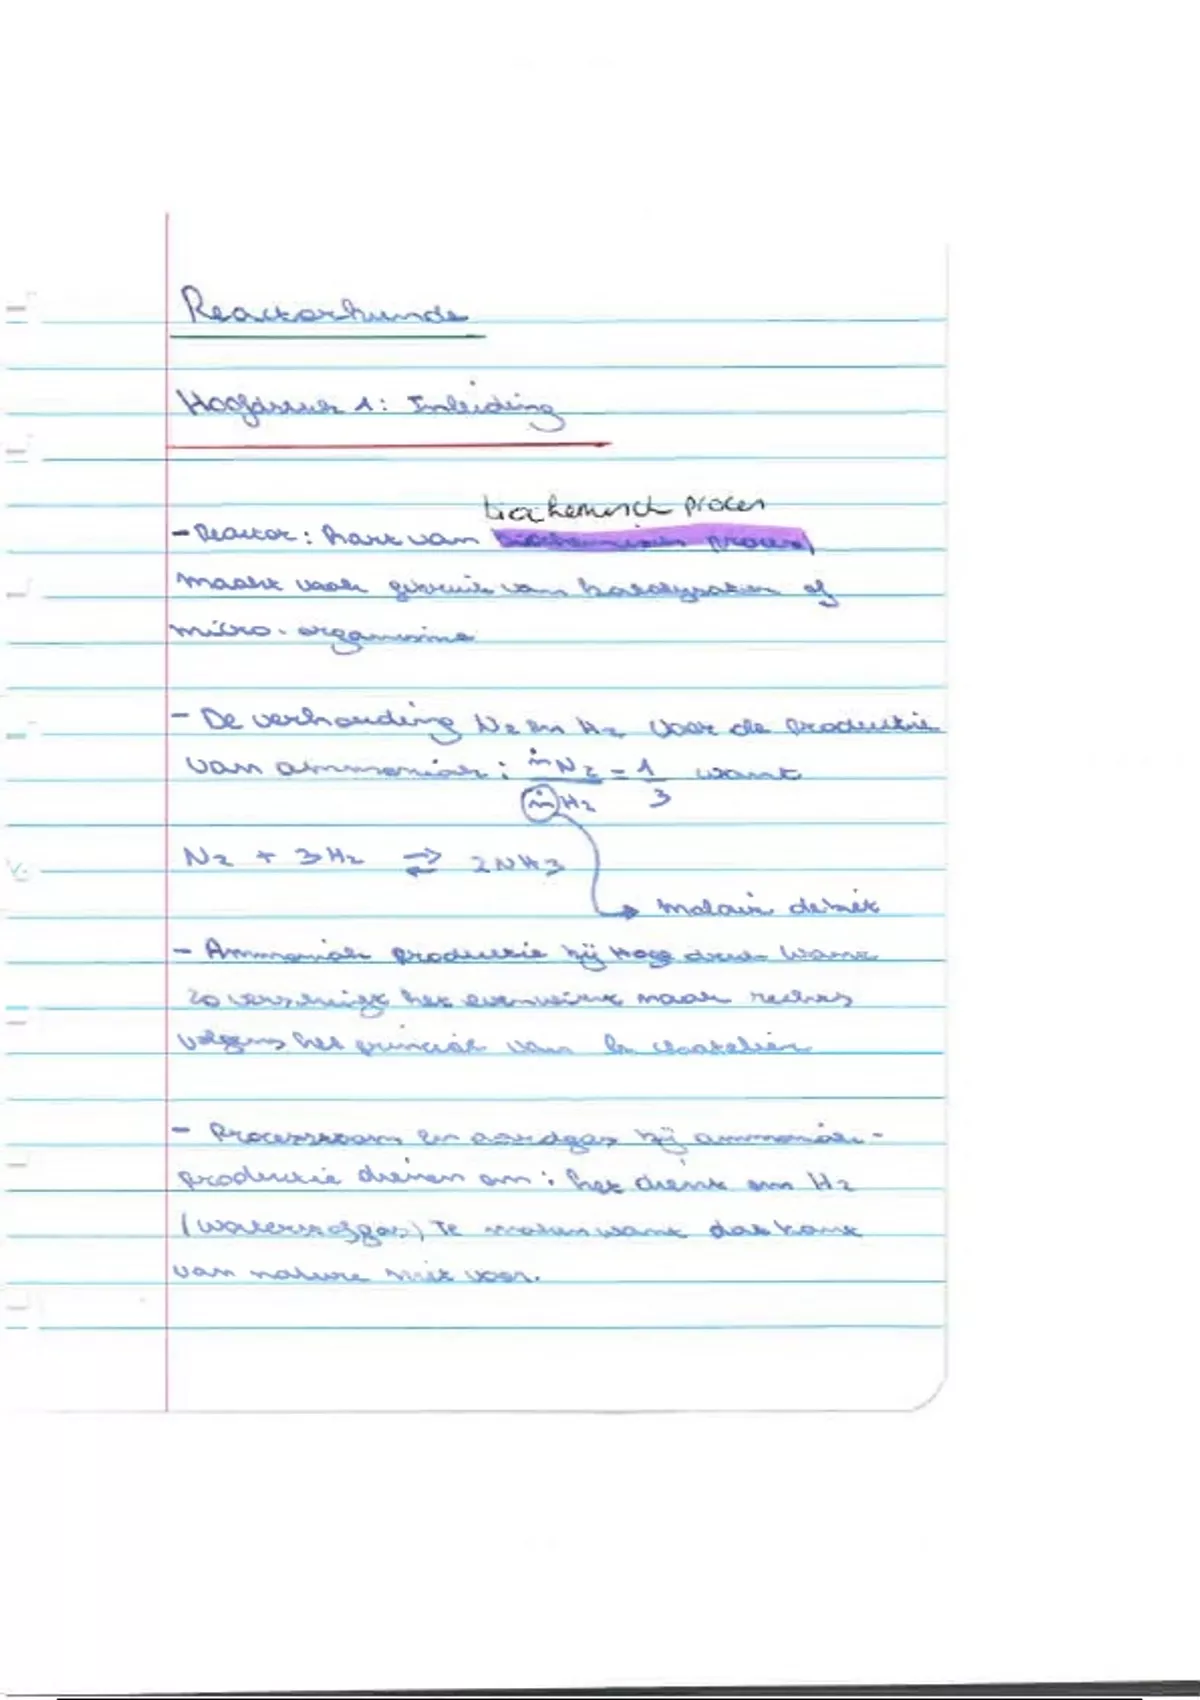 Reactorkunde
Hoofdstuk 1: Inleiding
biochemisch proces
- Reactor: hart van biochemisch proces,
maakt vaak gebruik van katalysator of
micro-organisme
- De verhouding N2 en H2 voor de productie
van ammoniak: ṅN2 = 1 want
ṅH2 3
N2 + 3H2 ⇌ 2NH3
molair debiet
- Ammoniak productie bij hoge druk want
zo verschuigt het evenwicht naar rechts
volgens het principe van le chatelier
- Processtoom en aardgas bij ammoniak-
productie dienen om: het dient om H2
(waterstofgas) te maken want dat komt
van nature niet voor.